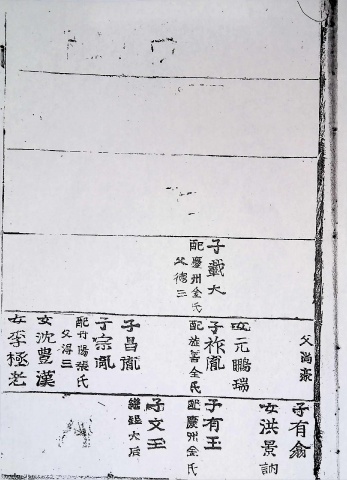 子載大
配慶州金氏
父德三
父尚豪
女元鵬瑞
子祚胤
配旌善金氏
子昌胤
子宗胤
配丹陽張氏
父得三
女沈豊漢
女李極老
子有
女洪景訥
子有玉
配慶州金氏
子文玉
大后